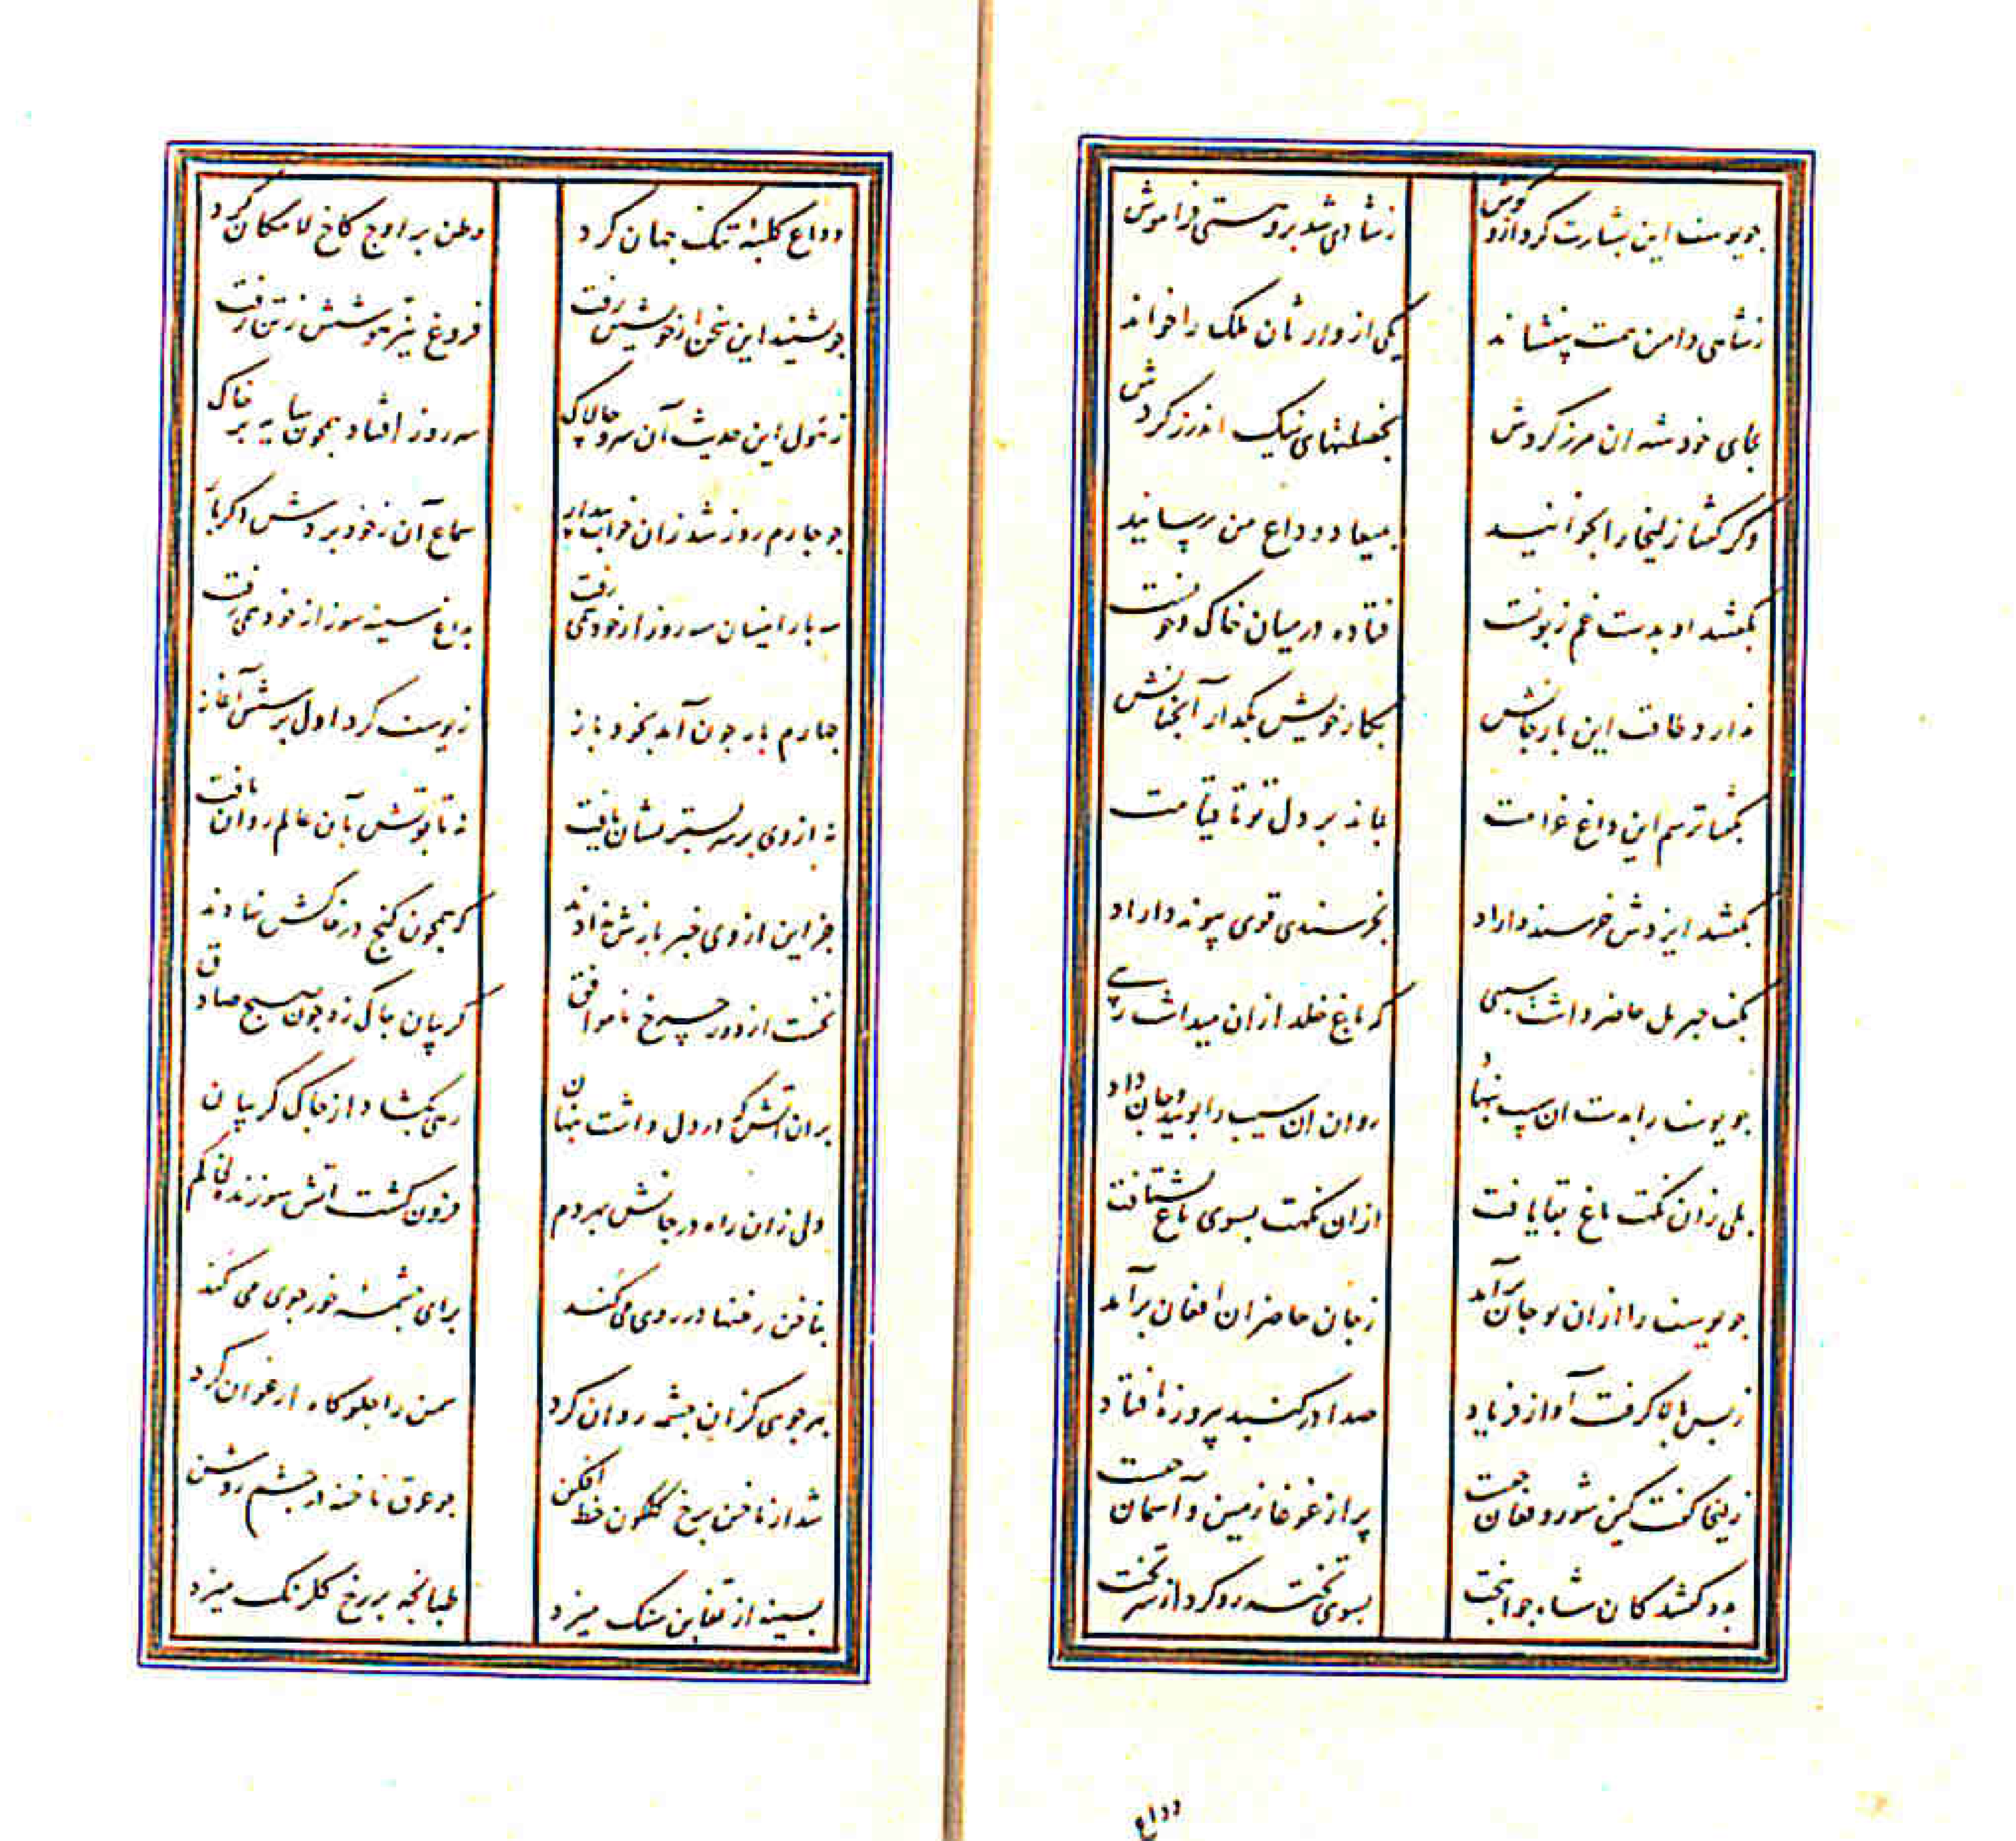 چو یوسف این بشارت کرد ازو گوش
ز شادی شد برو هستی فراموش
ز شاهی دامن همت بیفشاند
یکی از وارثان ملک را خواند
بجای خود شه ان مرز کردش
بخصلتهای نیک اندرز کردش
دگر گفتا زلیخا را بخوانید
بمیعاد وداع من رسانید
بگفتند او بدست غم زبونست
فتاده در میان خاک و خونست
ندارد طاقت این بار جانش
بکار خویش بگذار آنچنانش
بگفتا ترسم این داغ غرامت
بماند بر دل او تا قیامت
بگفتند ایزدش خرسند داراد
بخرسندی قوی پیوند داراد
بکف جبریل حاضر داشت سیبی
که باغ خلد ازان میداشت زیبی
چو یوسف را بدست ان سیب بنهاد
روان ان سیب را بویید و جان داد
بلی زان نکهت باغ بقا یافت
ازان نکهت بسوی باغ بشتافت
چو یوسف را ازان بو جان برآمد
ز جان حاضران افغان برآمد
ز بس بالا گرفت آواز فریاد
صدا در گنبد پیروزه افتاد
زلیخا گفت کین شور و فغان چیست
پر از غوغا زمین و آسمان چیست
بدو گفتند کان شاه جوانبخت
بسوی تخته رو کرد از سر تخت
وداع
وداع کلبهٔ تنگ جهان کرد
وطن بر اوج کاخ لامکان کرد
چو بشنید این سخن از خویشتن رفت
فروغ نیر هوشش ز تن رفت
ز هول این حدیث آن سرو چالاک
سه روز افتاد همچون سایه بر خاک
چو چارم روز شد زان خواب بیدار
سماع آن ز خود بردش دگر بار
سه بار اینسان سه روز از خود همی رفت
بداغ سینه سوز از خود همی رفت
چهارم بار چون آمد بخود باز
ز یوسف کرد اول پرسش آغاز
نه از وی بر سر بستر نشان یافت
نه تابوتش بآن عالم روان یافت
جز این از وی خبر بازش ندادند
که همچون گنج در خاکش نهادند
نخست از دور چرخ ناموافق
گریبان چاک زد چون صبح صادق
بران آتش که در دل داشت پنهان
رهی بگشاد از چاک گریبان
ولی زان راه در جانش بهر دم
فزون گشت آتش سوزنده نی کم
بناخن رخنها در روی می کند
برای چشمهٔ خور جوی می کند
بهر جوی کزان چشمه روان کرد
سمن را جلوگاه ارغوان کرد
شد از ناخن برخ گلگون خط افکن
چو عرق ناخنه در چشم روشن
بسینه از تغابن سنگ میزد
طبانچه بر رخ گلرنگ میزد